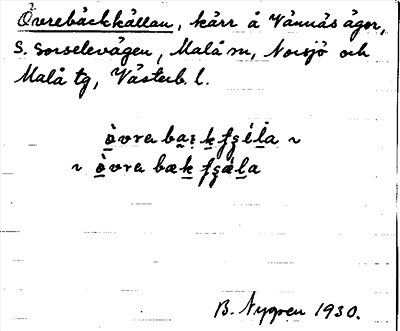 Övrebäckkällan, kärr å Vännäs ägor,
S. Sorselevägen, Malå sn, Norsjö och
Malå tg, Västerb. l.
òvrabaikfşéla ~
~ òvrabækfşæla
B. Nygren 1930.